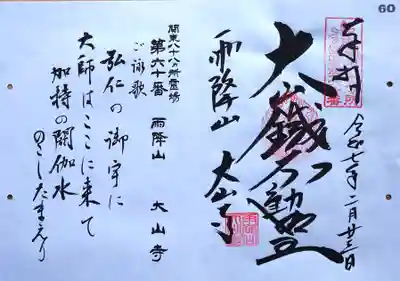 60
奉拝
令和七年二月廿三日
大山鐵不動
雨降山 大山寺
関東八十八ヵ所霊場
第六十番 雨降山 大山寺
ご詠歌
弘仁の御宇に
大師はここに来て
加持の閼伽水
のこしたまえり